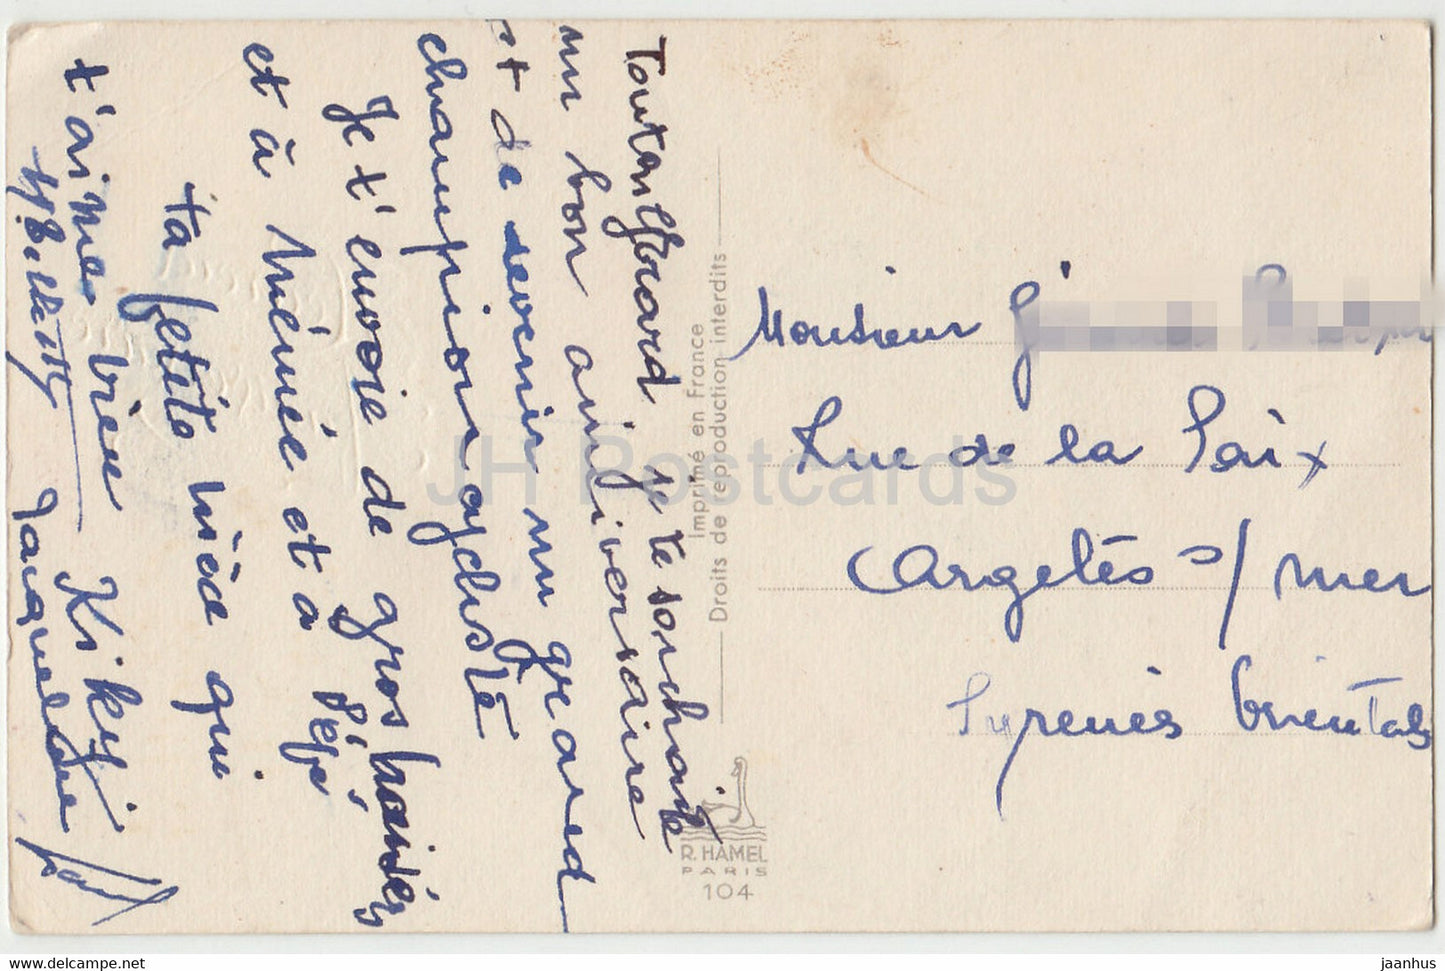 Tonton Gérard je te souhaite
un bon anniversaire
et de devenir un grand
championcycliste
Je t'envoie de gros baisers
et à Mémée et à Pépé
ta petite nièce qui
t'aime bien Kikey
Jacqueline
Imprimé en France
Droits de reproduction interdits
R. HAMEL
PARIS
104
Monsieur
Rue de la Paix
Argelès s/ mer
Pyrenées Orientales
JH Postcards
jaanhus-postcards.com
jaanhus